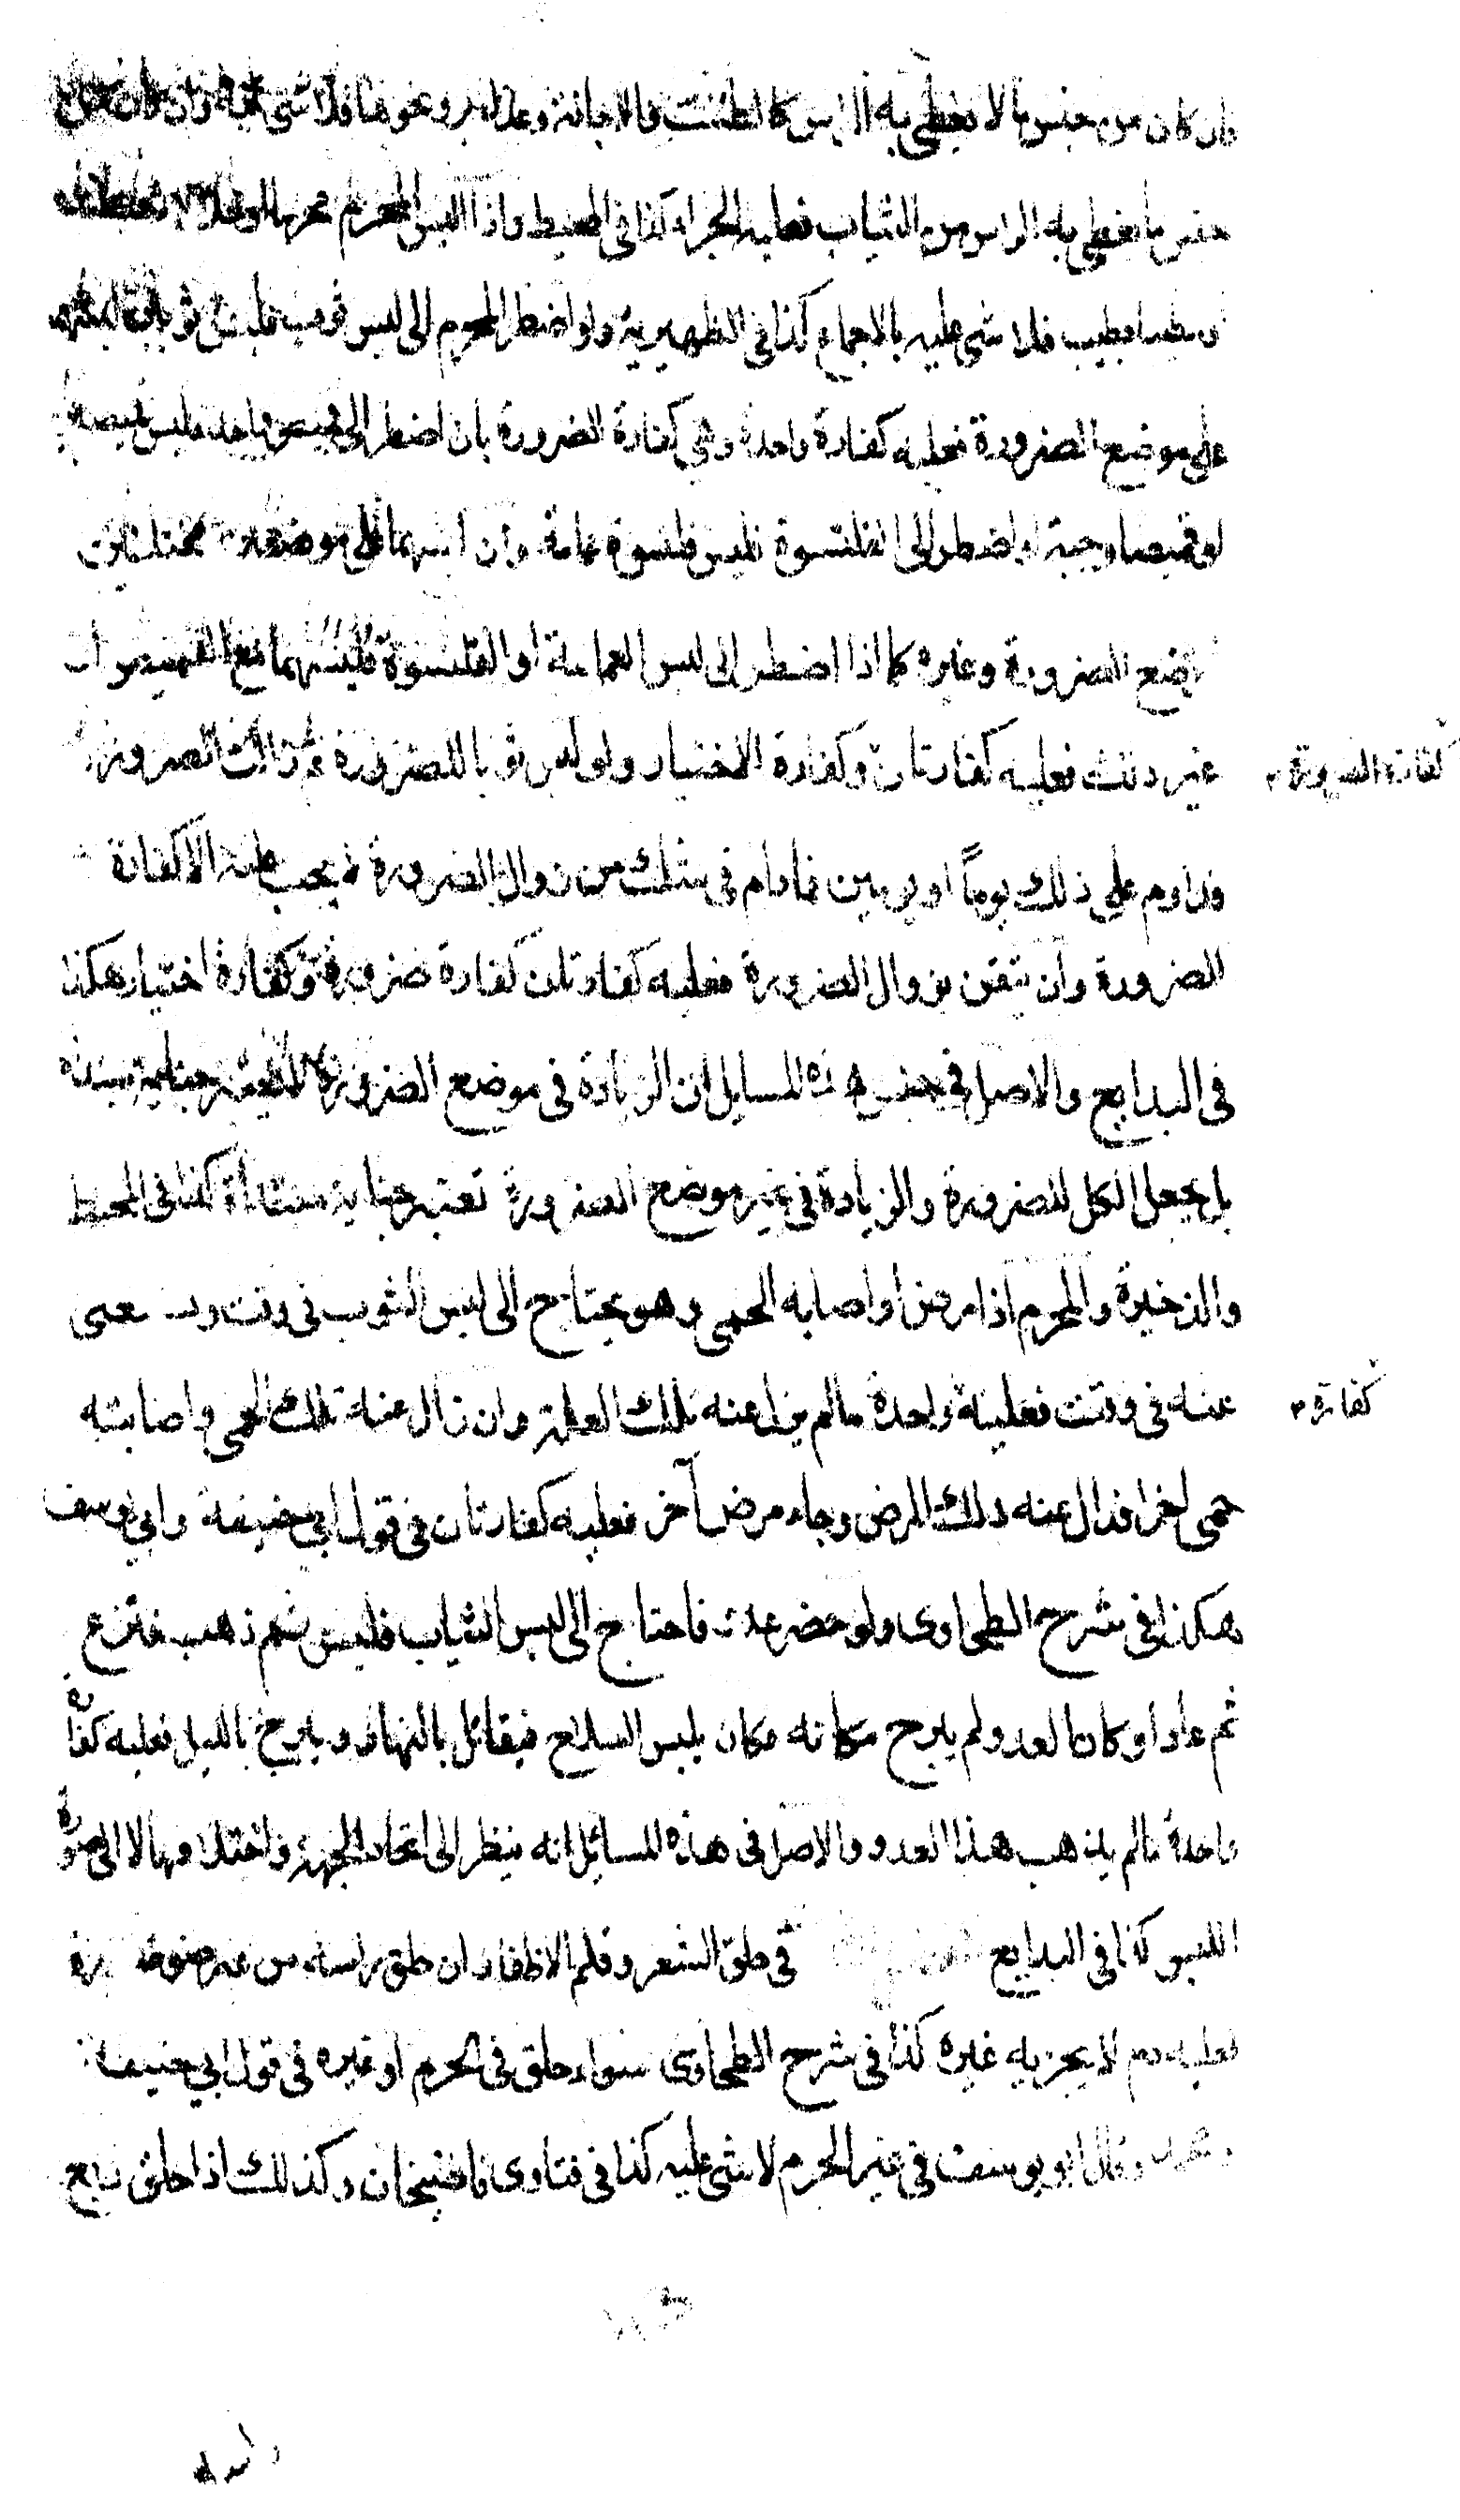 فان كان من جنس ما لا يغطى به الراس كالطست والاجانة وعدل بر ونحوها فلا شئ عليه وان كان من
جنس ما يغطى به الراس من الثياب فعليه الجزاء كذا فى المحيط واذا البس المحرم محرما او حلالا مخيطا
او مطيبا بطيب فلا شئ عليه بالاجماع كذا فى الظهيرية ولو اضطر المحرم الى لبس ثوب فلبس ثوبين فان لبسهما
على موضع الضرورة فعليه كفارة واحدة وهى كفارة الضرورة بان اضطر الى قميص واحد فلبس قميصين
او قميصا وجبة او اضطر الى القلنسوة فلبس قلنسوة عمامة وان لبسهما على موضعين مختلفين
موضع الضرورة وغيره كما اذا اضطر الى لبس العمامة او القلنسوة فلبسهما مع القميص او
غير ذلك فعليه كفارتان وكفارة الاختيار ولو لبس ثوبا للضرورة ثم زالت الضرورة
كفارة الضرورة
فداوم على ذلك يوماً او يومين فما دام فى شك من زوال الضرورة لا يجب عليه الا كفارة
الضرورة وان تيقن بزوال الضرورة فعليه كفارتان كفارة ضرورة وكفارة اختيار هكذا
فى البدايع والاصل فى جنس هذه المسايل ان الزيادة فى موضع الضرورة لا تعتبر جناية مبتداه
بل يجعل الكل للضرورة والزيادة فى غير موضع الضرورة تعتبر جناية مبتداة كذا فى المحيط
والذخيرة والمحرم اذا مرض او اصابه الحمى وهو يحتاج الى لبس الثوب فى وقت ويستغنى
عنه فى وقت فعليه واحدة ما لم يزل عنه تلك العلة وان زال عنه تلك الحمى واصابته
كفارة
حمى اخرا فزال عنه ذلك المرض وجاء مرض آخر فعليه كفارتان فى قول ابى حنيفة وابى يوسف
هكذا فى شرح الطحاوى ولو حضر عدو فاحتاج الى لبس الثياب فلبس ثم ذهب فنزع
ثم عاد او كان العدو لم يبرح مكانه فكان يلبس السلاح فيقاتل بالنهار وينزع بالليل فعليه كفارة
واحدة ما لم يذهب هذا العدو والاصل فى هذه المسائل انه ينظر الى اتحاد الجهة واختلافها لا الى صورة
اللبس كذا فى البدايع فى حلق الشعر وقلم الاظفار ان حلق راسه من غير ضرورة
فعليه دم لا يجزيه غيره كذا فى شرح الطحاوى سواء حلق فى الحرم او غيره فى قول ابى حنيفة
ومحمد وقال ابو يوسف فى غير الحرم لا شئ عليه كذا فى فتاوى قاضيخان وكذلك اذا حلق ربع
راسه